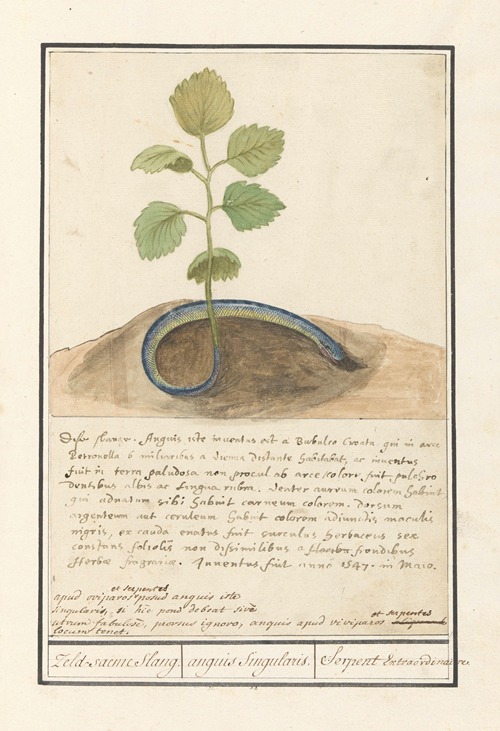 Dese slange. Anguis iste inventus est a Bubulco Croata qui in arce
Petronella 6 miliaribus a Vienna Distante habitabat, ac inventus
fuit in terra paludosa non procul ab arce, colore fuit pulchro
Dentibus albis ac Lingua rubra. Venter aureum colorem habuit
qui adnatum sibi habuit carneum colorem. Dorsum
argenteum aut ceruleum habuit colorem adiunctis maculis
nigris, ex cauda enatus fuit surculus herbaceus sex
constans foliolis non dissimilibus a frondibus
Herbæ fragrariæ. Inventus fuit anno 1547. in Maio.
et serpentes
apud oviparos posui anguis iste
singularis, si hic poni debeat sive
utrum fabulose, prorsus ignoro, anguis apud viviparos
et serpentes
locum tenet.
Zeld-saeme Slang. anguis Singularis. Serpent Extraordinaire.